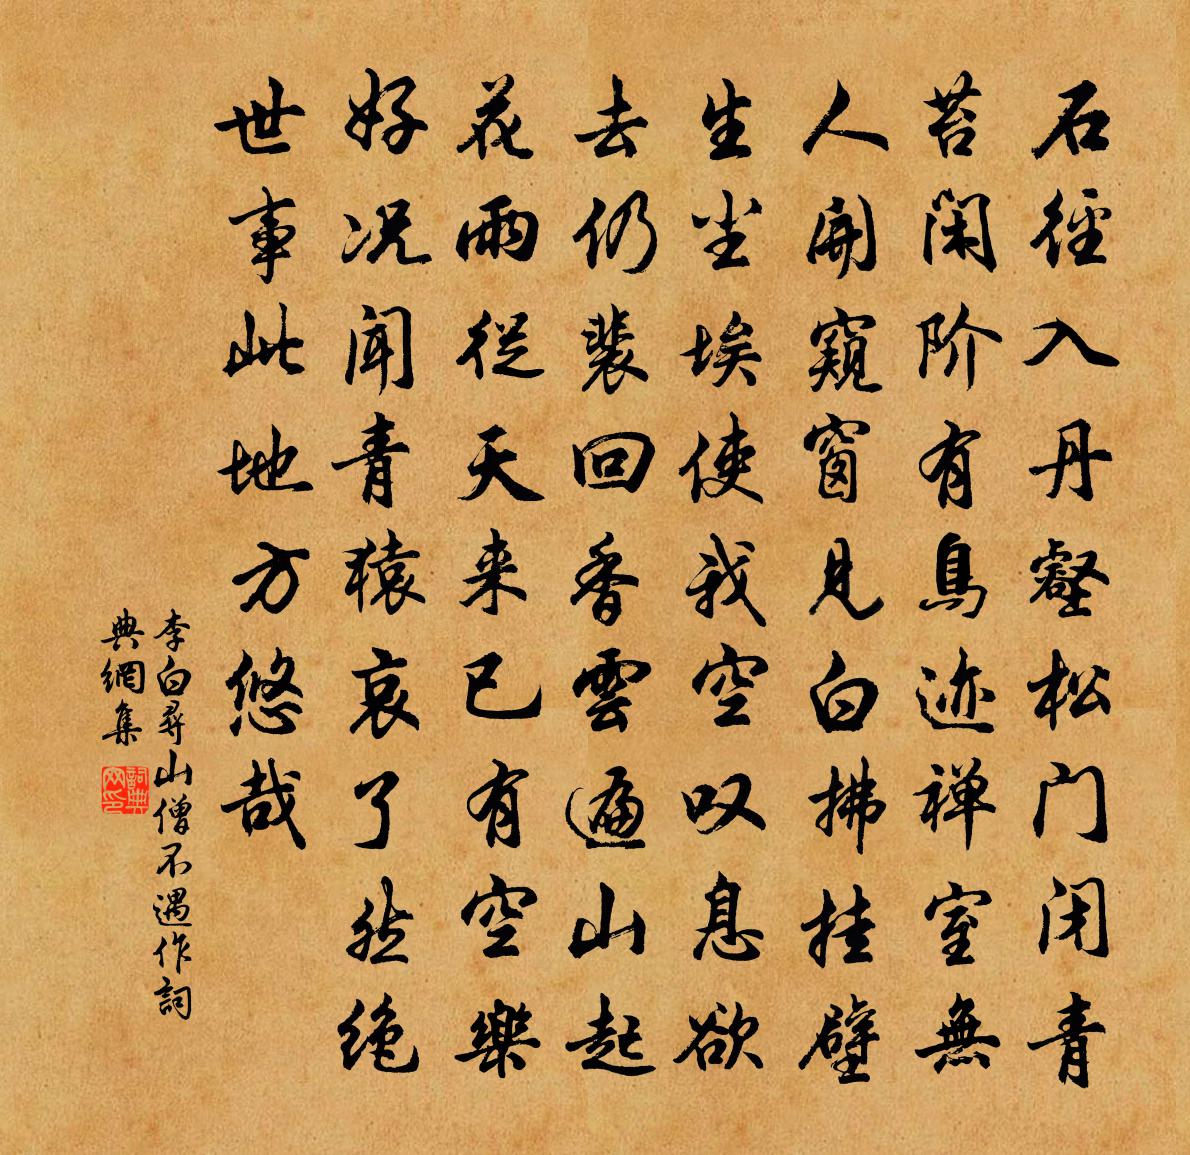 石徑入丹壑松门闭青
苔闲阶有鳥迹禅室無
人開窺窗見白拂挂壁
生尘埃使我空叹息欲
去仍裴回香雲遍山起
花雨從天来已有空樂
好况闻青猿哀了然绝
世事此地方悠哉
李白尋山僧不遇作詞
典網集
詞典网印